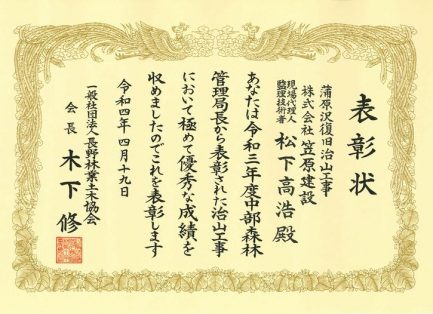 表彰状
蒲原沢復旧治山工事
株式会社笠原建設
現場代理人
監理技術者
松下高浩殿
あなたは令和三年度中部森林
管理局長から表彰された治山工事
において極めて優秀な成績を
収めましたのでこれを表彰します
令和四年四月十九日
一般社団法人長野林業土木協会
会長 木下修